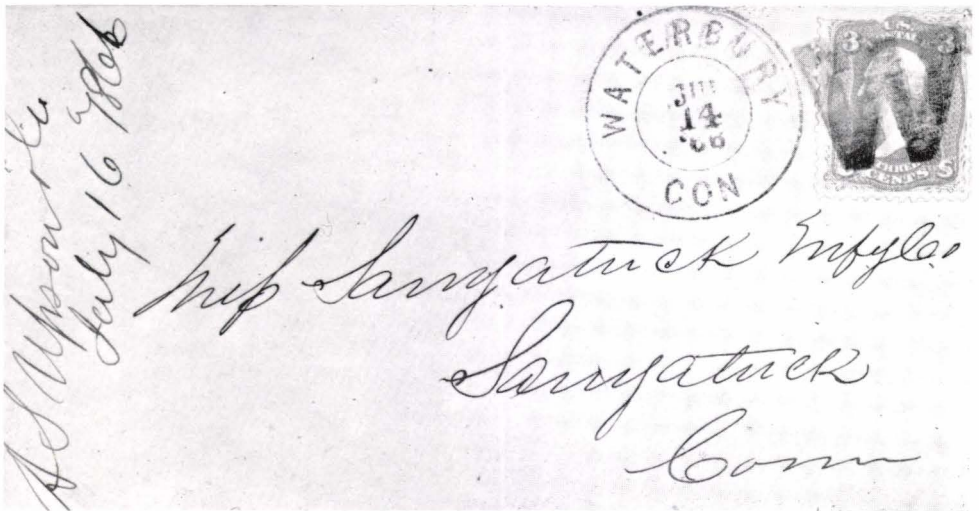 A S Upson & Co
July 16 1866
WATERBURY
JUL
14
'66
CON
3 3
POSTAL
THREE
CENTS
Mess Saugatuck Mfg Co.
Saugatuck
Conn